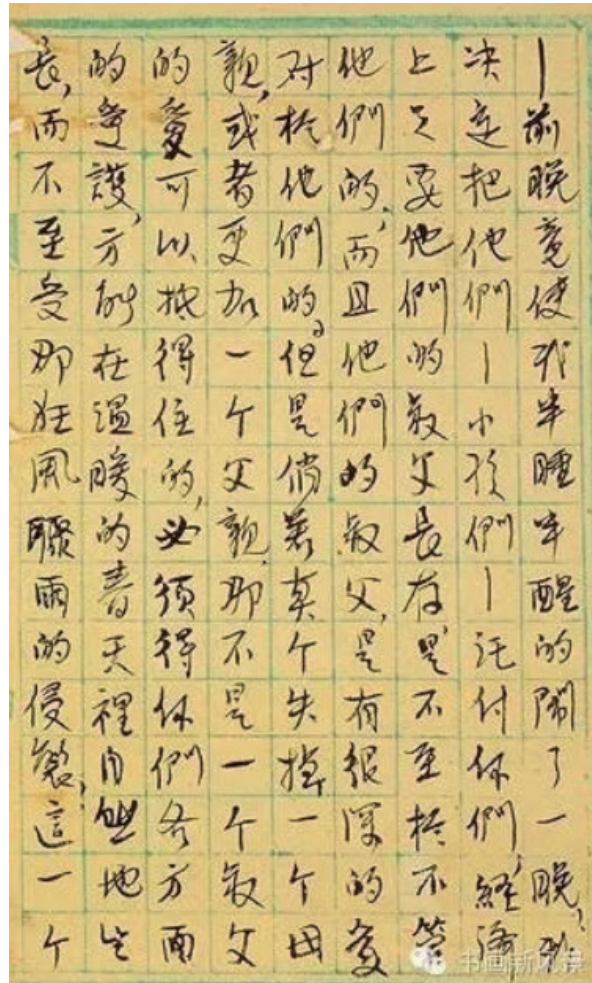 —前晚竟使我半睡半醒的鬧了一晚,我
决定把他們—小孩們—託付你們,經濟
上只要他們的叔父長存,是不至於不管
他們的,而且他們的叔父,是有很深的爱
对於他們的。但是倘若真个失掉一个母
親,或者更加一个父親,那不是一个叔父
的爱可以抵得住的,必須得你們各方面
的愛護,方能在温暖的春天裡自然地生
長,而不至受那狂風驟雨的侵襲,這一个
书画新风景